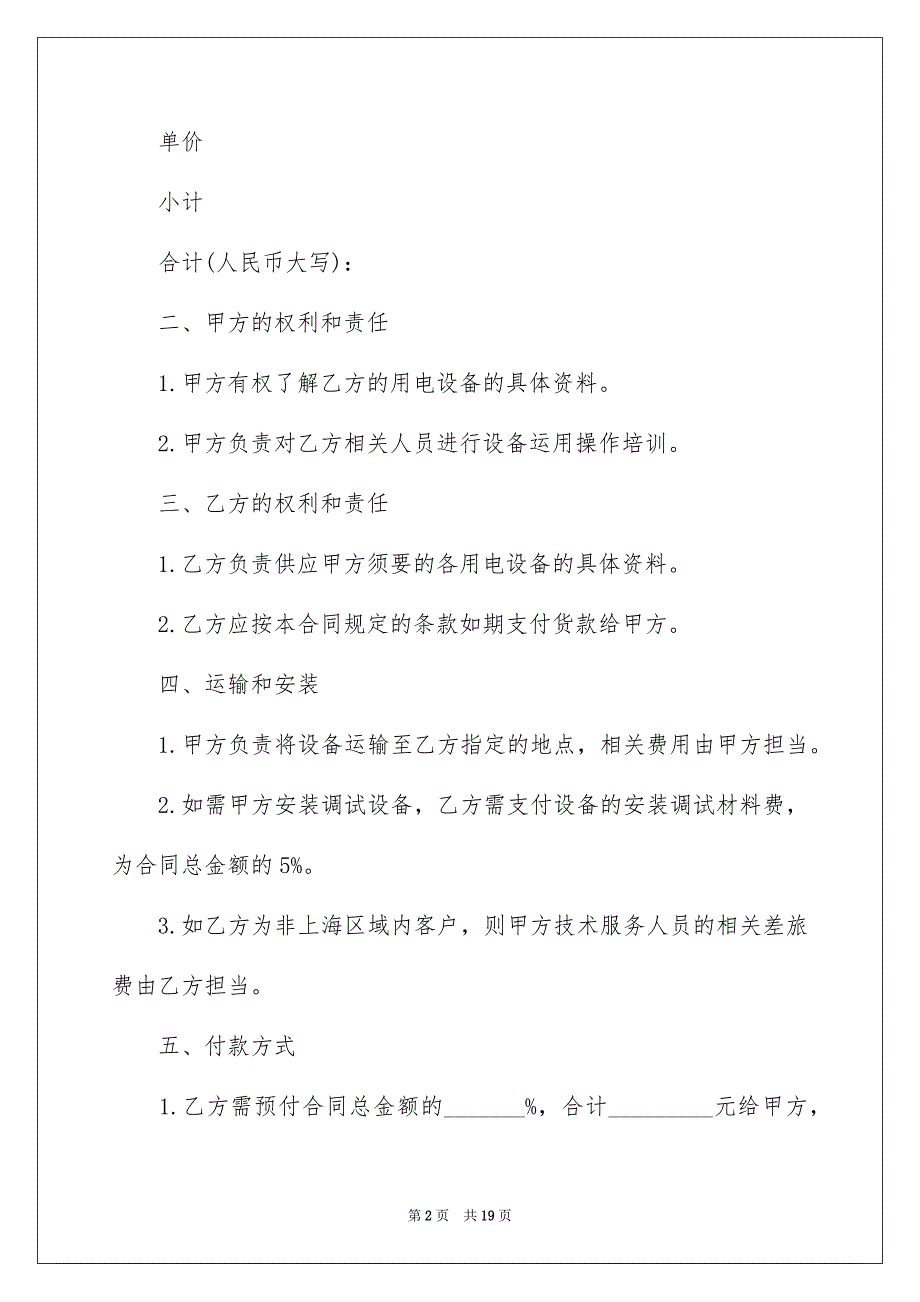 单价
小计
合计(人民币大写)：
二、甲方的权利和责任
1.甲方有权了解乙方的用电设备的具体资料。
2.甲方负责对乙方相关人员进行设备运用操作培训。
三、乙方的权利和责任
1.乙方负责供应甲方须要的各用电设备的具体资料。
2.乙方应按本合同规定的条款如期支付货款给甲方。
四、运输和安装
1.甲方负责将设备运输至乙方指定的地点，相关费用由甲方担当。
2.如需甲方安装调试设备，乙方需支付设备的安装调试材料费，
为合同总金额的5%。
3.如乙方为非上海区域内客户，则甲方技术服务人员的相关差旅
费由乙方担当。
五、付款方式
1.乙方需预付合同总金额的_______%，合计_________元给甲方，
第2页 共19页